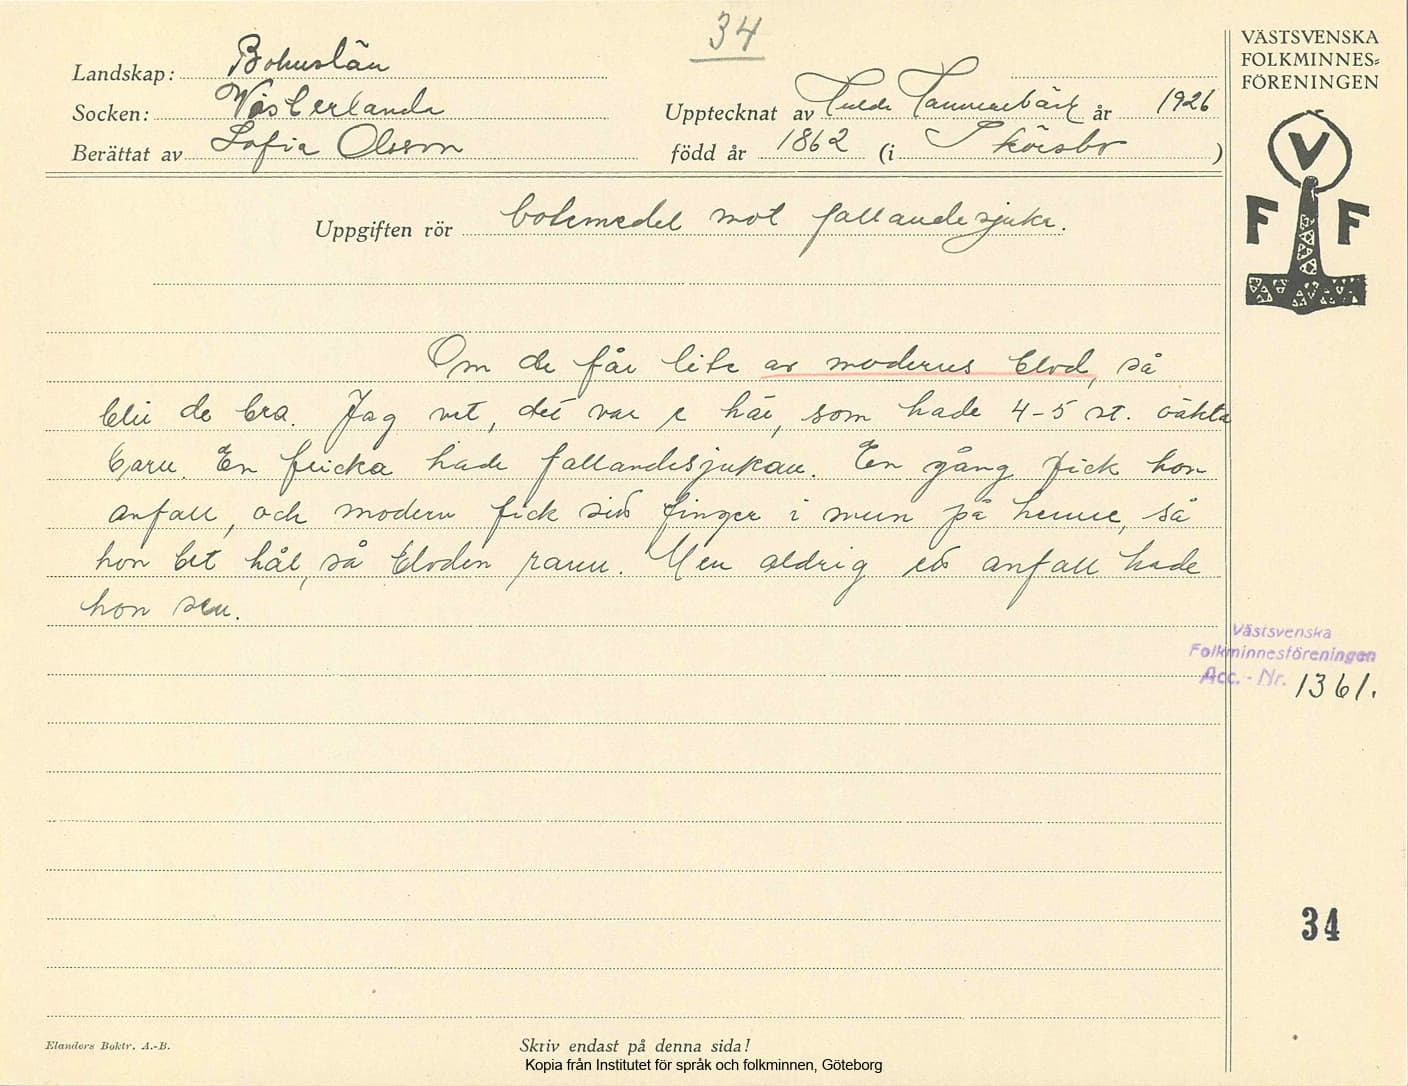 34
Landskap: Bohuslän
Socken: Västerlanda
Upptecknat av Tulda Hammarbäck år 1926
Berättat av Sofia Olsson
född år 1862 (i Skörsbo)
VÄSTSVENSKA
FOLKMINNES-
FÖRENINGEN
V
F F
Uppgiften rör botemedel mot fallandesjuka.
Om de får lite av moderns blod, så
blir de bra. Jag vet, det var e här, som hade 4-5 st. oäkta
barn. En flicka hade fallandesjukan. En gång fick hon
anfall, och modern fick sitt finger i mun på henne, så
hon bet hål, så bloden rann. Men aldrig ett anfall hade
hon sen.
Västsvenska
Folkminnesföreningen
Acc. - Nr. 1361.
34
Elanders Boktr. A.-B.
Skriv endast på denna sida!
Kopia från Institutet för språk och folkminnen, Göteborg